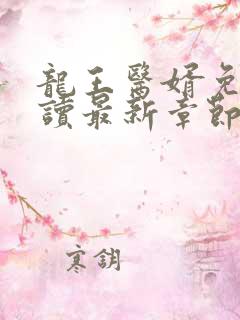 龍王醫婿免
讀最新章節
寒鈅